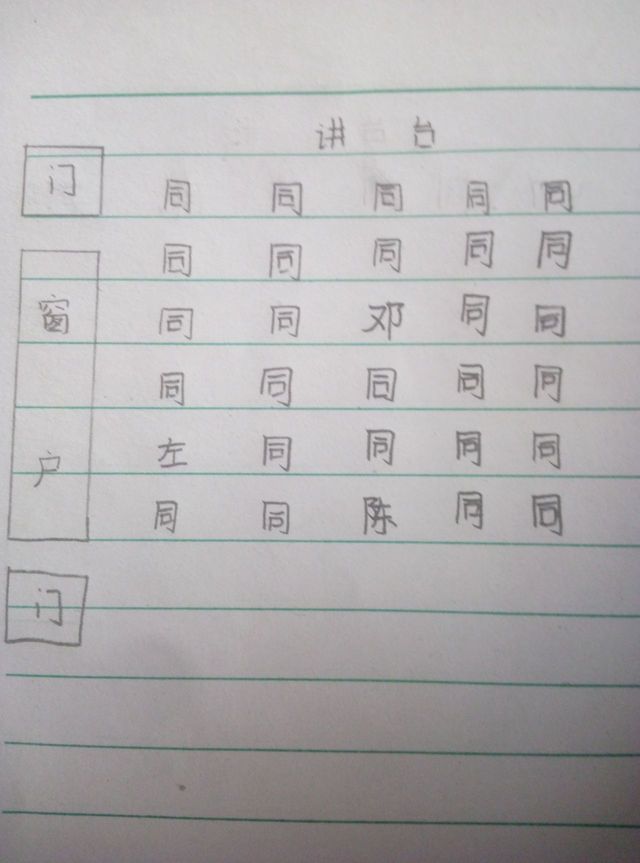 讲台
门 同 同 同 同 同
同 同 同 同 同
窗 同 同 邓 同 同
同 同 同 同 同
户 左 同 同 同 同
同 同 陈 同 同
门